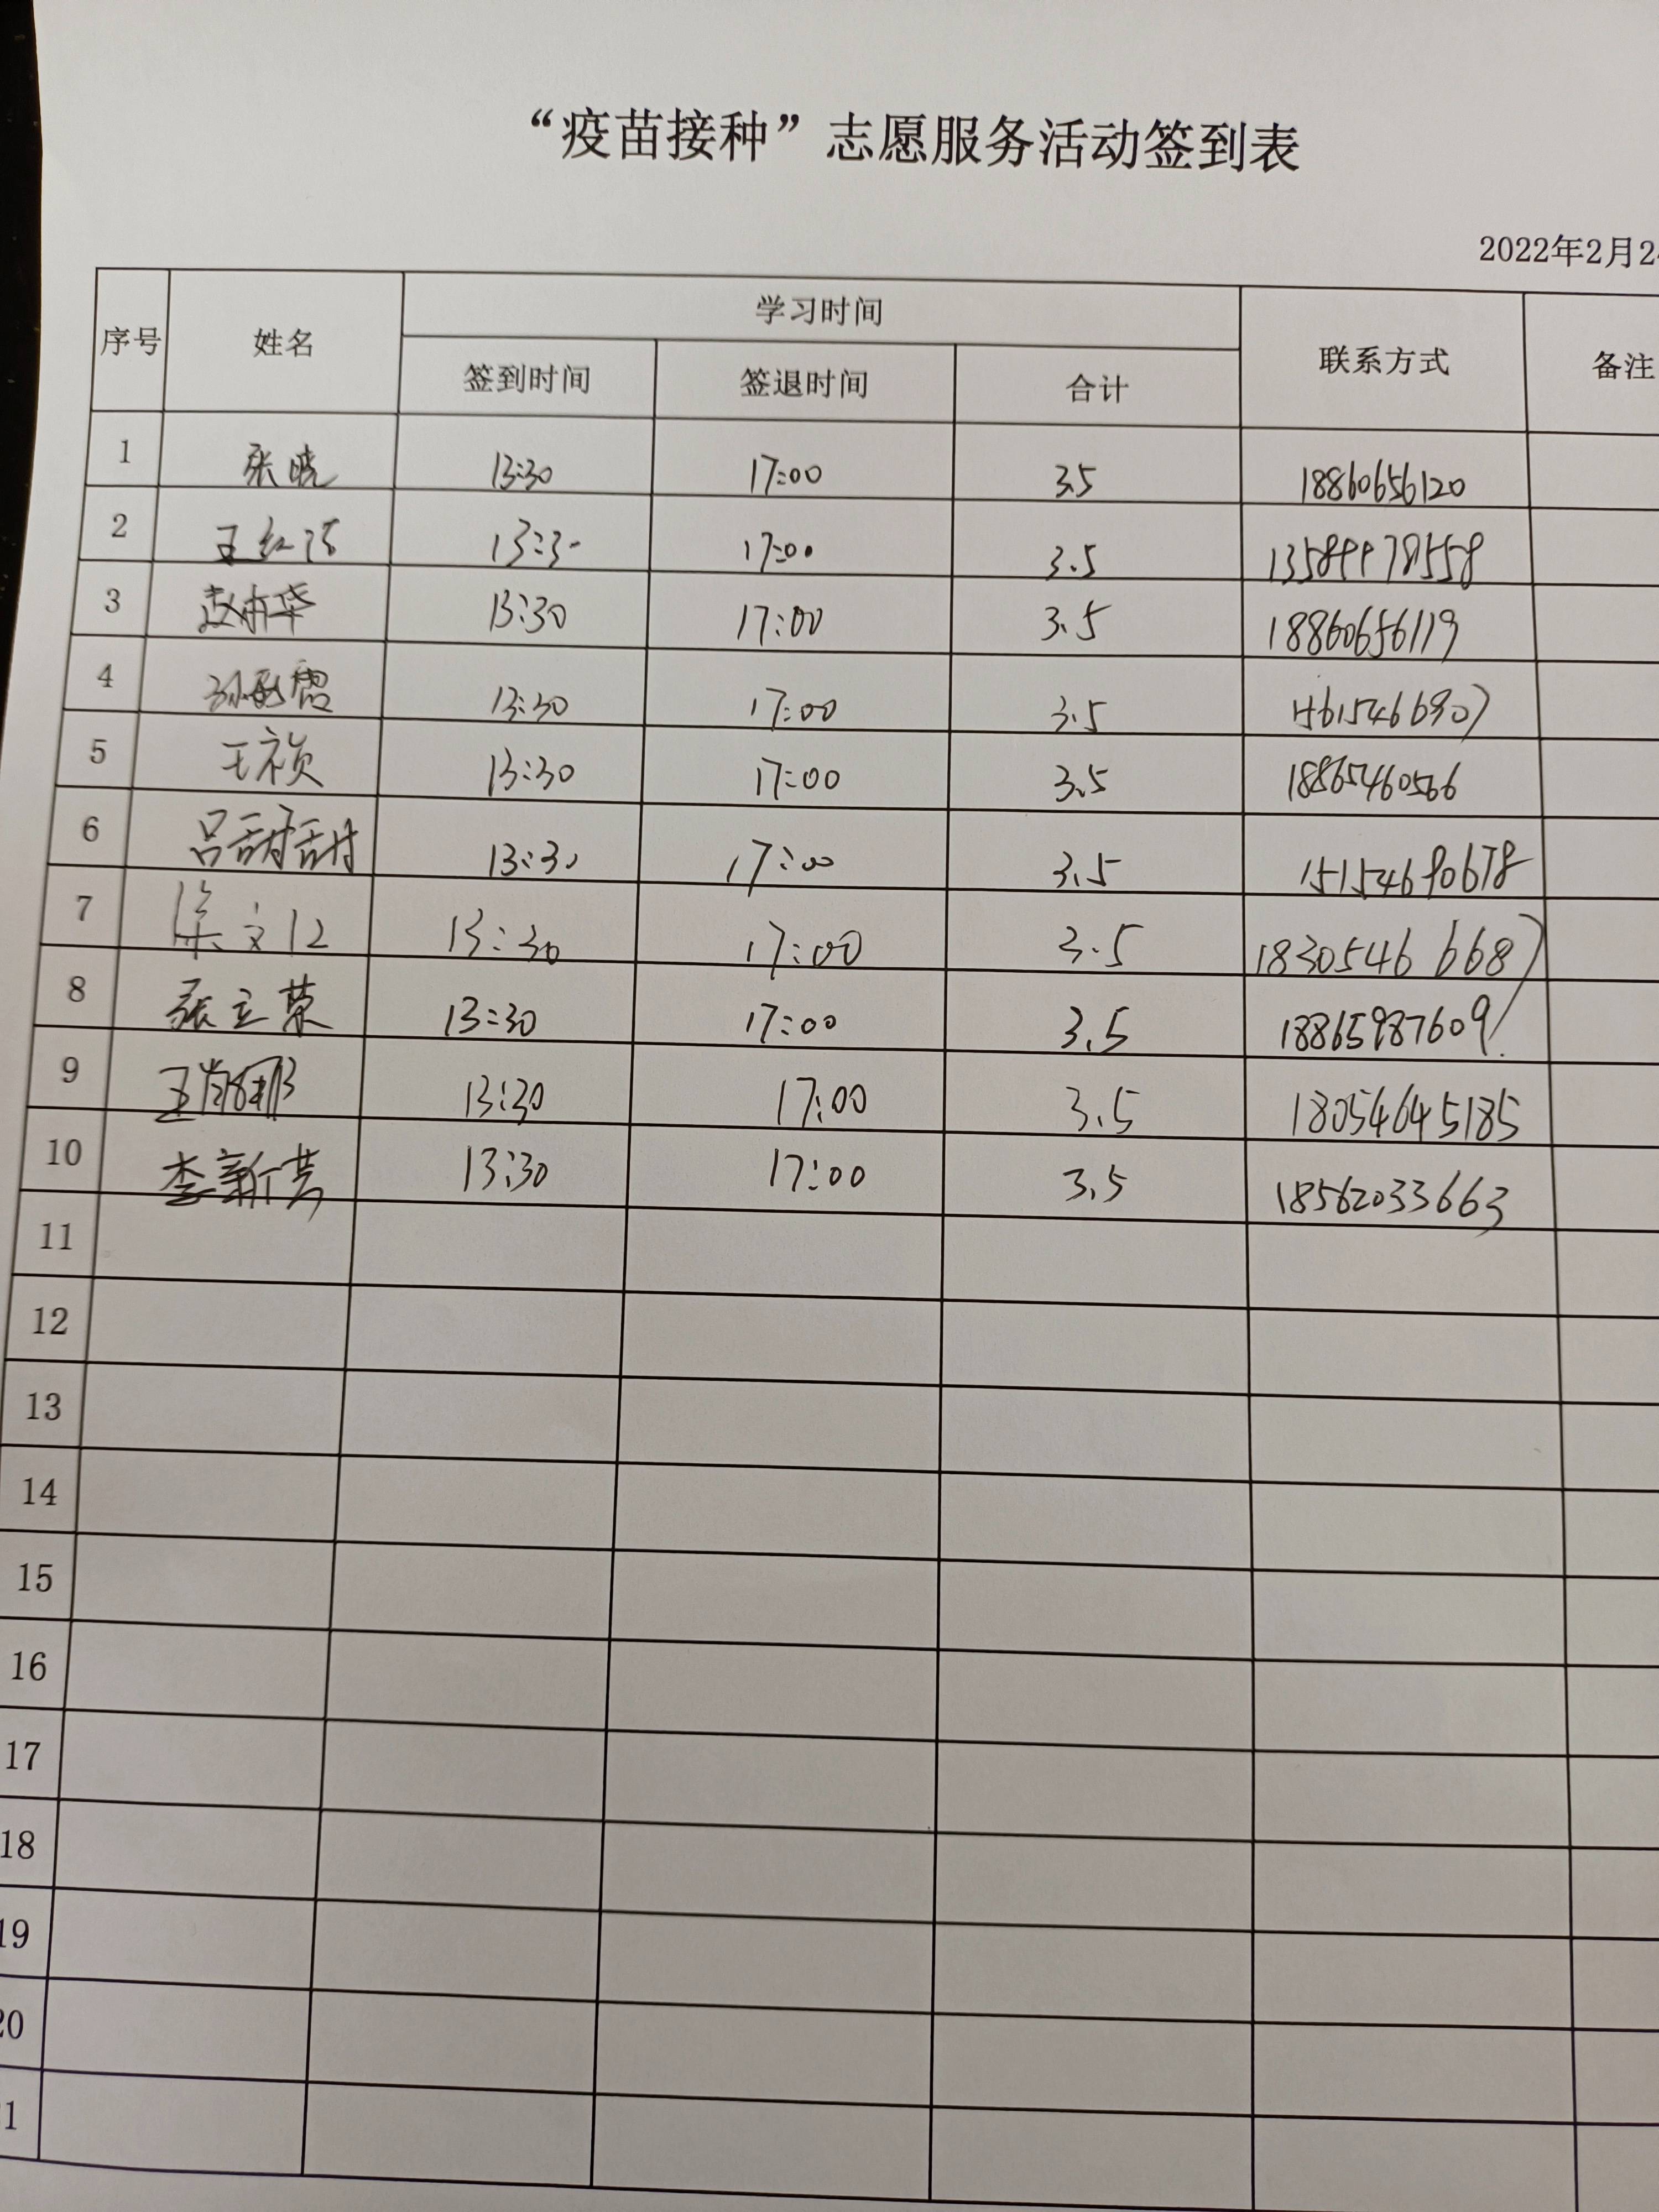 “疫苗接种”志愿服务活动签到表
2022年2月2
序号 姓名 学习时间 联系方式 备注
签到时间 签退时间 合计
1 张晓 13:30 17:00 3.5 18860656120
2 13:30 17:00 3.5 13589978558
3 13:30 17:00 3.5 18860656119
4 13:30 17:00 3.5
5 王祯 13:30 17:00 3.5 18865460566
6 吕甜甜 13:30 17:00 3.5 15154690678
7 13:30 17:00 3.5 18305466687
8 张立荣 13:30 17:00 3.5 18865987609
9 王肖娜 13:30 17:00 3.5 18054645185
10 李新芳 13:30 17:00 3.5 18562033663
11
12
13
14
15
16
17
18
19
20
1